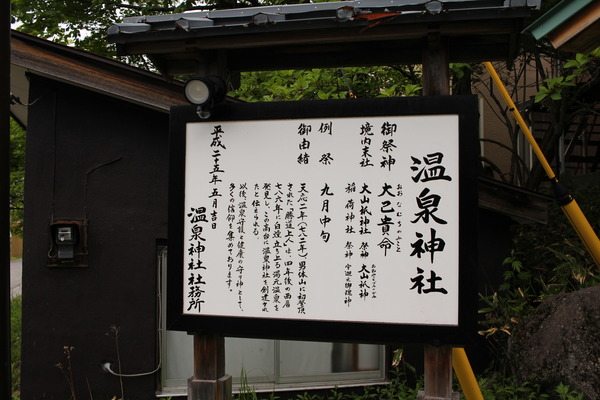 温泉神社
御祭神 大己貴命
おおなむちのみこと
境内末社 大山祇神社 祭神 大山祇神
稲荷神社 祭神
例祭 九月中旬
御由緒 天応二年(七八二年)男体山に初登頂
された「勝道上人」は、四年後の西暦
七八八年に白煙立ち上る湯元温泉を
発見し、この高台に温泉神社を創建され
たと伝えられる。
以後、温泉守護と健康の守り神として、
多くの信仰を集めております。
平成二十五年五月吉日
温泉神社社務所